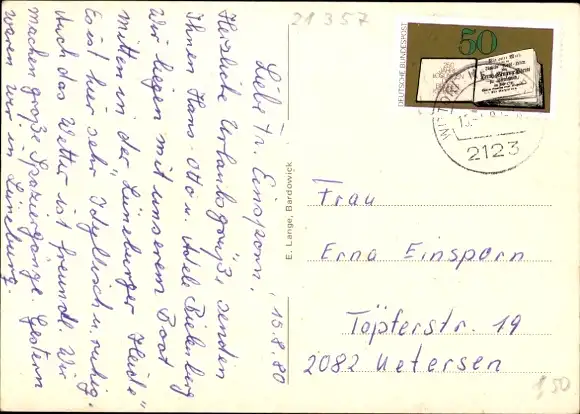 21357
Liebe Fr. Einsporn, 15.8.80
Herzliche Urlaubsgrüße senden
Ihnen Hans-Otto u. Adele
Wir liegen mit unserem Boot
mitten in der "Lüneburger Heide"
Es ist hier sehr idyllisch u. ruhig.
Auch das Wetter ist freundl. Wir
machen große Spaziergänge. Gestern
waren wir in Lüneburg.
E. Lange, Bardowick
DEUTSCHE BUNDESPOST
50
2123
Frau
Erna Einsporn
Töpferstr. 19
2082 Uetersen
1,50